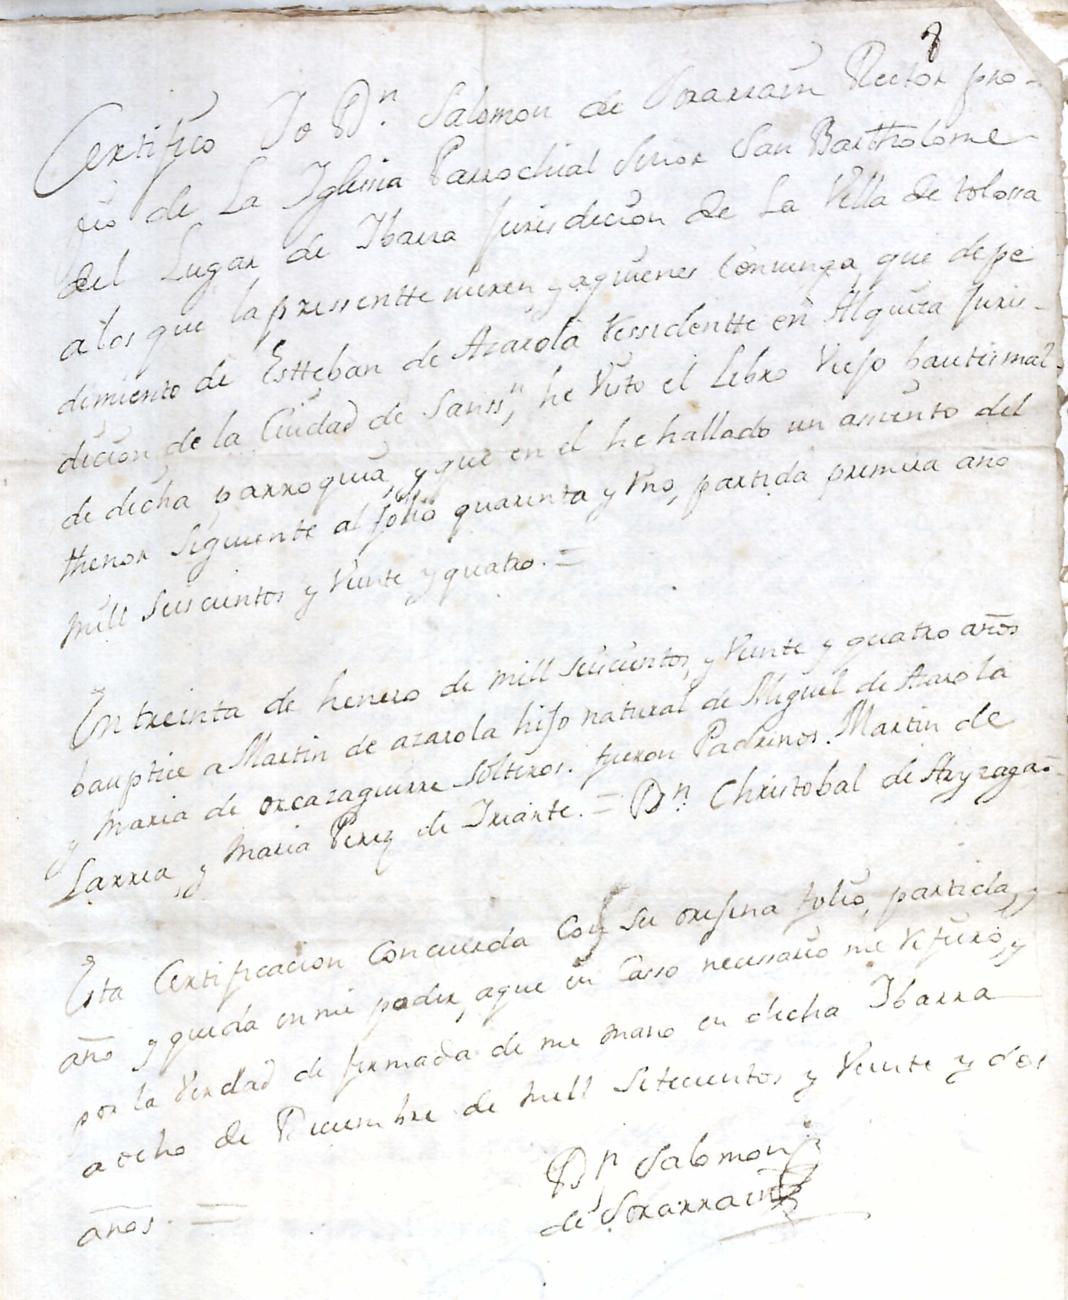 8
Certifico Yo Dn. Salomon de Sorarrain Rector pro-
pio de La Iglesia Parrochial Señor San Barttholome
del Lugar de Ibarra Jurisdicion de La Villa de tolossa
a los que la pressentte vieren y aquienes Convenga, que de pe
dimiento de Estteban de Azarola Ressidentte en Alquiza Juris-
dicion de la Ciudad de Sanssn, he Visto el Lebro Viejo bautismal
de dicha parroquia, y que en el he hallado un asiento del
thenor Siguiente al folio quarenta y Uno, partida primera año
mill Seiscientos y Veinte y quatro. =
En treinta de henero de mill seiscientos, y Veinte y quatro años
bauptice a Martin de azarola hijo natural de Miguel de Azarola
y Maria de orcazaguirre Solteros. fueron Padrinos. Martin de
Larrea, y Maria Perez de Iriarte. = Dn. Christobal de Aryzaga =
Esta Certificacion Concuerda Con su orijina folio, partida, y
año y queda en mi poder, aque en Casso necessario me refiero, y
por la Verdad de firmada de mi mano en dicha Ibarra
a ocho de Diciembre de mill Setecientos y Veinte y dos
años. =
Dn Salomon
de Sorarrain